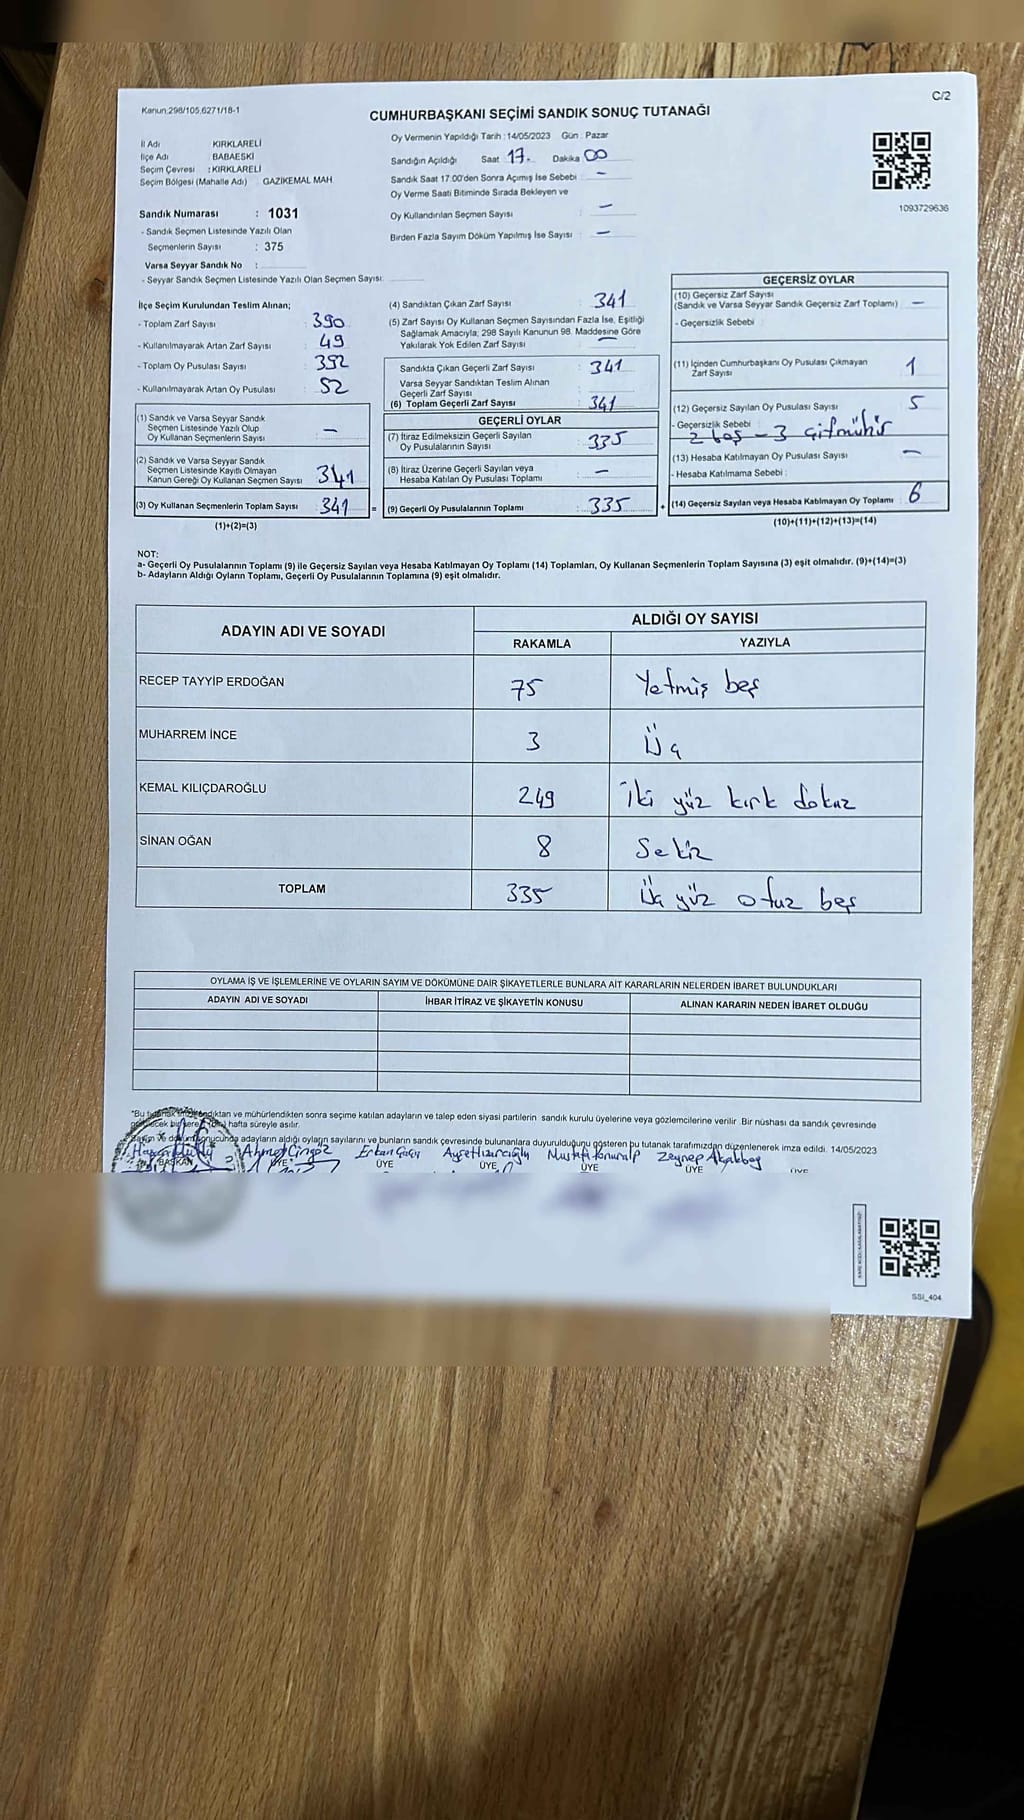 Kanun:298/105,6271/18-1
C/2
CUMHURBAŞKANI SEÇİMİ SANDIK SONUÇ TUTANAĞI
İl Adı KIRKLARELİ
İlçe Adı : BABAESKİ
Seçim Çevresi : KIRKLARELİ
Seçim Bölgesi (Mahalle Adı) GAZİKEMAL MAH.
Oy Vermenin Yapıldığı Tarih : 14/05/2023 Gün : Pazar
Sandığın Açıldığı Saat 17. Dakika 00
Sandık Saat 17:00'den Sonra Açımış İse Sebebi : —
Oy Verme Saati Bitiminde Sırada Bekleyen ve
Oy Kullandırılan Seçmen Sayısı : —
Birden Fazla Sayım Döküm Yapılmış İse Sayısı : —
1093729636
Sandık Numarası : 1031
- Sandık Seçmen Listesinde Yazılı Olan
Seçmenlerin Sayısı : 375
Varsa Seyyar Sandık No :
- Seyyar Sandık Seçmen Listesinde Yazılı Olan Seçmen Sayısı:
İlçe Seçim Kurulundan Teslim Alınan;
- Toplam Zarf Sayısı : 390
- Kullanılmayarak Artan Zarf Sayısı : 49
- Toplam Oy Pusulası Sayısı : 392
- Kullanılmayarak Artan Oy Pusulası : 52
(1) Sandık ve Varsa Seyyar Sandık
Seçmen Listesinde Yazılı Olup
Oy Kullanan Seçmenlerin Sayısı : —
(2) Sandık ve Varsa Seyyar Sandık
Seçmen Listesinde Kayıtlı Olmayan
Kanun Gereği Oy Kullanan Seçmen Sayısı : 341
(3) Oy Kullanan Seçmenlerin Toplam Sayısı : 341
(1)+(2)=(3)
(4) Sandıktan Çıkan Zarf Sayısı : 341
(5) Zarf Sayısı Oy Kullanan Seçmen Sayısından Fazla İse, Eşitliği
Sağlamak Amacıyla, 298 Sayılı Kanunun 98. Maddesine Göre
Yakılarak Yok Edilen Zarf Sayısı : —
Sandıkta Çıkan Geçerli Zarf Sayısı : 341
Varsa Seyyar Sandıktan Teslim Alınan
Geçerli Zarf Sayısı :
(6) Toplam Geçerli Zarf Sayısı : 341
GEÇERLİ OYLAR
(7) İtiraz Edilmeksizin Geçerli Sayılan
Oy Pusulalarının Sayısı : 335
(8) İtiraz Üzerine Geçerli Sayılan veya
Hesaba Katılan Oy Pusulası Toplamı : —
(9) Geçerli Oy Pusulalarının Toplamı : 335
=
+
GEÇERSİZ OYLAR
(10) Geçersiz Zarf Sayısı
(Sandık ve Varsa Seyyar Sandık Geçersiz Zarf Toplamı) : —
- Geçersizlik Sebebi :
(11) İçinden Cumhurbaşkanı Oy Pusulası Çıkmayan
Zarf Sayısı : 1
(12) Geçersiz Sayılan Oy Pusulası Sayısı : 5
- Geçersizlik Sebebi :
2 boş - 3 çift mühür
(13) Hesaba Katılmayan Oy Pusulası Sayısı : —
- Hesaba Katılmama Sebebi :
(14) Geçersiz Sayılan veya Hesaba Katılmayan Oy Toplamı : 6
(10)+(11)+(12)+(13)=(14)
NOT:
a- Geçerli Oy Pusulalarının Toplamı (9) ile Geçersiz Sayılan veya Hesaba Katılmayan Oy Toplamı (14) Toplamları, Oy Kullanan Seçmenlerin Toplam Sayısına (3) eşit olmalıdır. (9)+(14)=(3)
b- Adayların Aldığı Oyların Toplamı, Geçerli Oy Pusulalarının Toplamına (9) eşit olmalıdır.
ADAYIN ADI VE SOYADI
ALDIĞI OY SAYISI
RAKAMLA YAZIYLA
RECEP TAYYİP ERDOĞAN 75 Yetmiş beş
MUHARREM İNCE 3 Üç
KEMAL KILIÇDAROĞLU 249 İki yüz kırk dokuz
SİNAN OĞAN 8 Sekiz
TOPLAM 335 Üç yüz otuz beş
OYLAMA İŞ VE İŞLEMLERİNE VE OYLARIN SAYIM VE DÖKÜMÜNE DAİR ŞİKAYETLERLE BUNLARA AİT KARARLARIN NELERDEN İBARET BULUNDUKLARI
ADAYIN ADI VE SOYADI İHBAR İTİRAZ VE ŞİKAYETİN KONUSU ALINAN KARARIN NEDEN İBARET OLDUĞU
"Bu tutanak imzalandıktan ve mühürlendikten sonra seçime katılan adayların ve talep eden siyasi partilerin sandık kurulu üyelerine veya gözlemcilerine verilir. Bir nüshası da sandık çevresinde
hafta süreyle asılır.
Sayım ve döküm sonucunda adayların aldığı oyların sayılarını ve bunların sandık çevresinde bulunanlara duyurulduğunu gösteren bu tutanak tarafımızdan düzenlenerek imza edildi. 14/05/2023
Ahmet Cingöz Erkan Mustafa Zeynep
BAŞKAN ÜYE ÜYE ÜYE ÜYE ÜYE ÜYE
SSİ_404